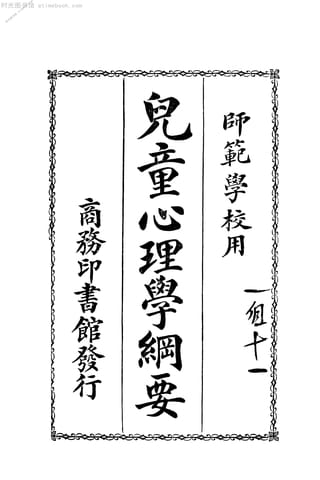 时光图书馆 etimebook.com
師範學校用
兒童心理學綱要
商務印書館發行